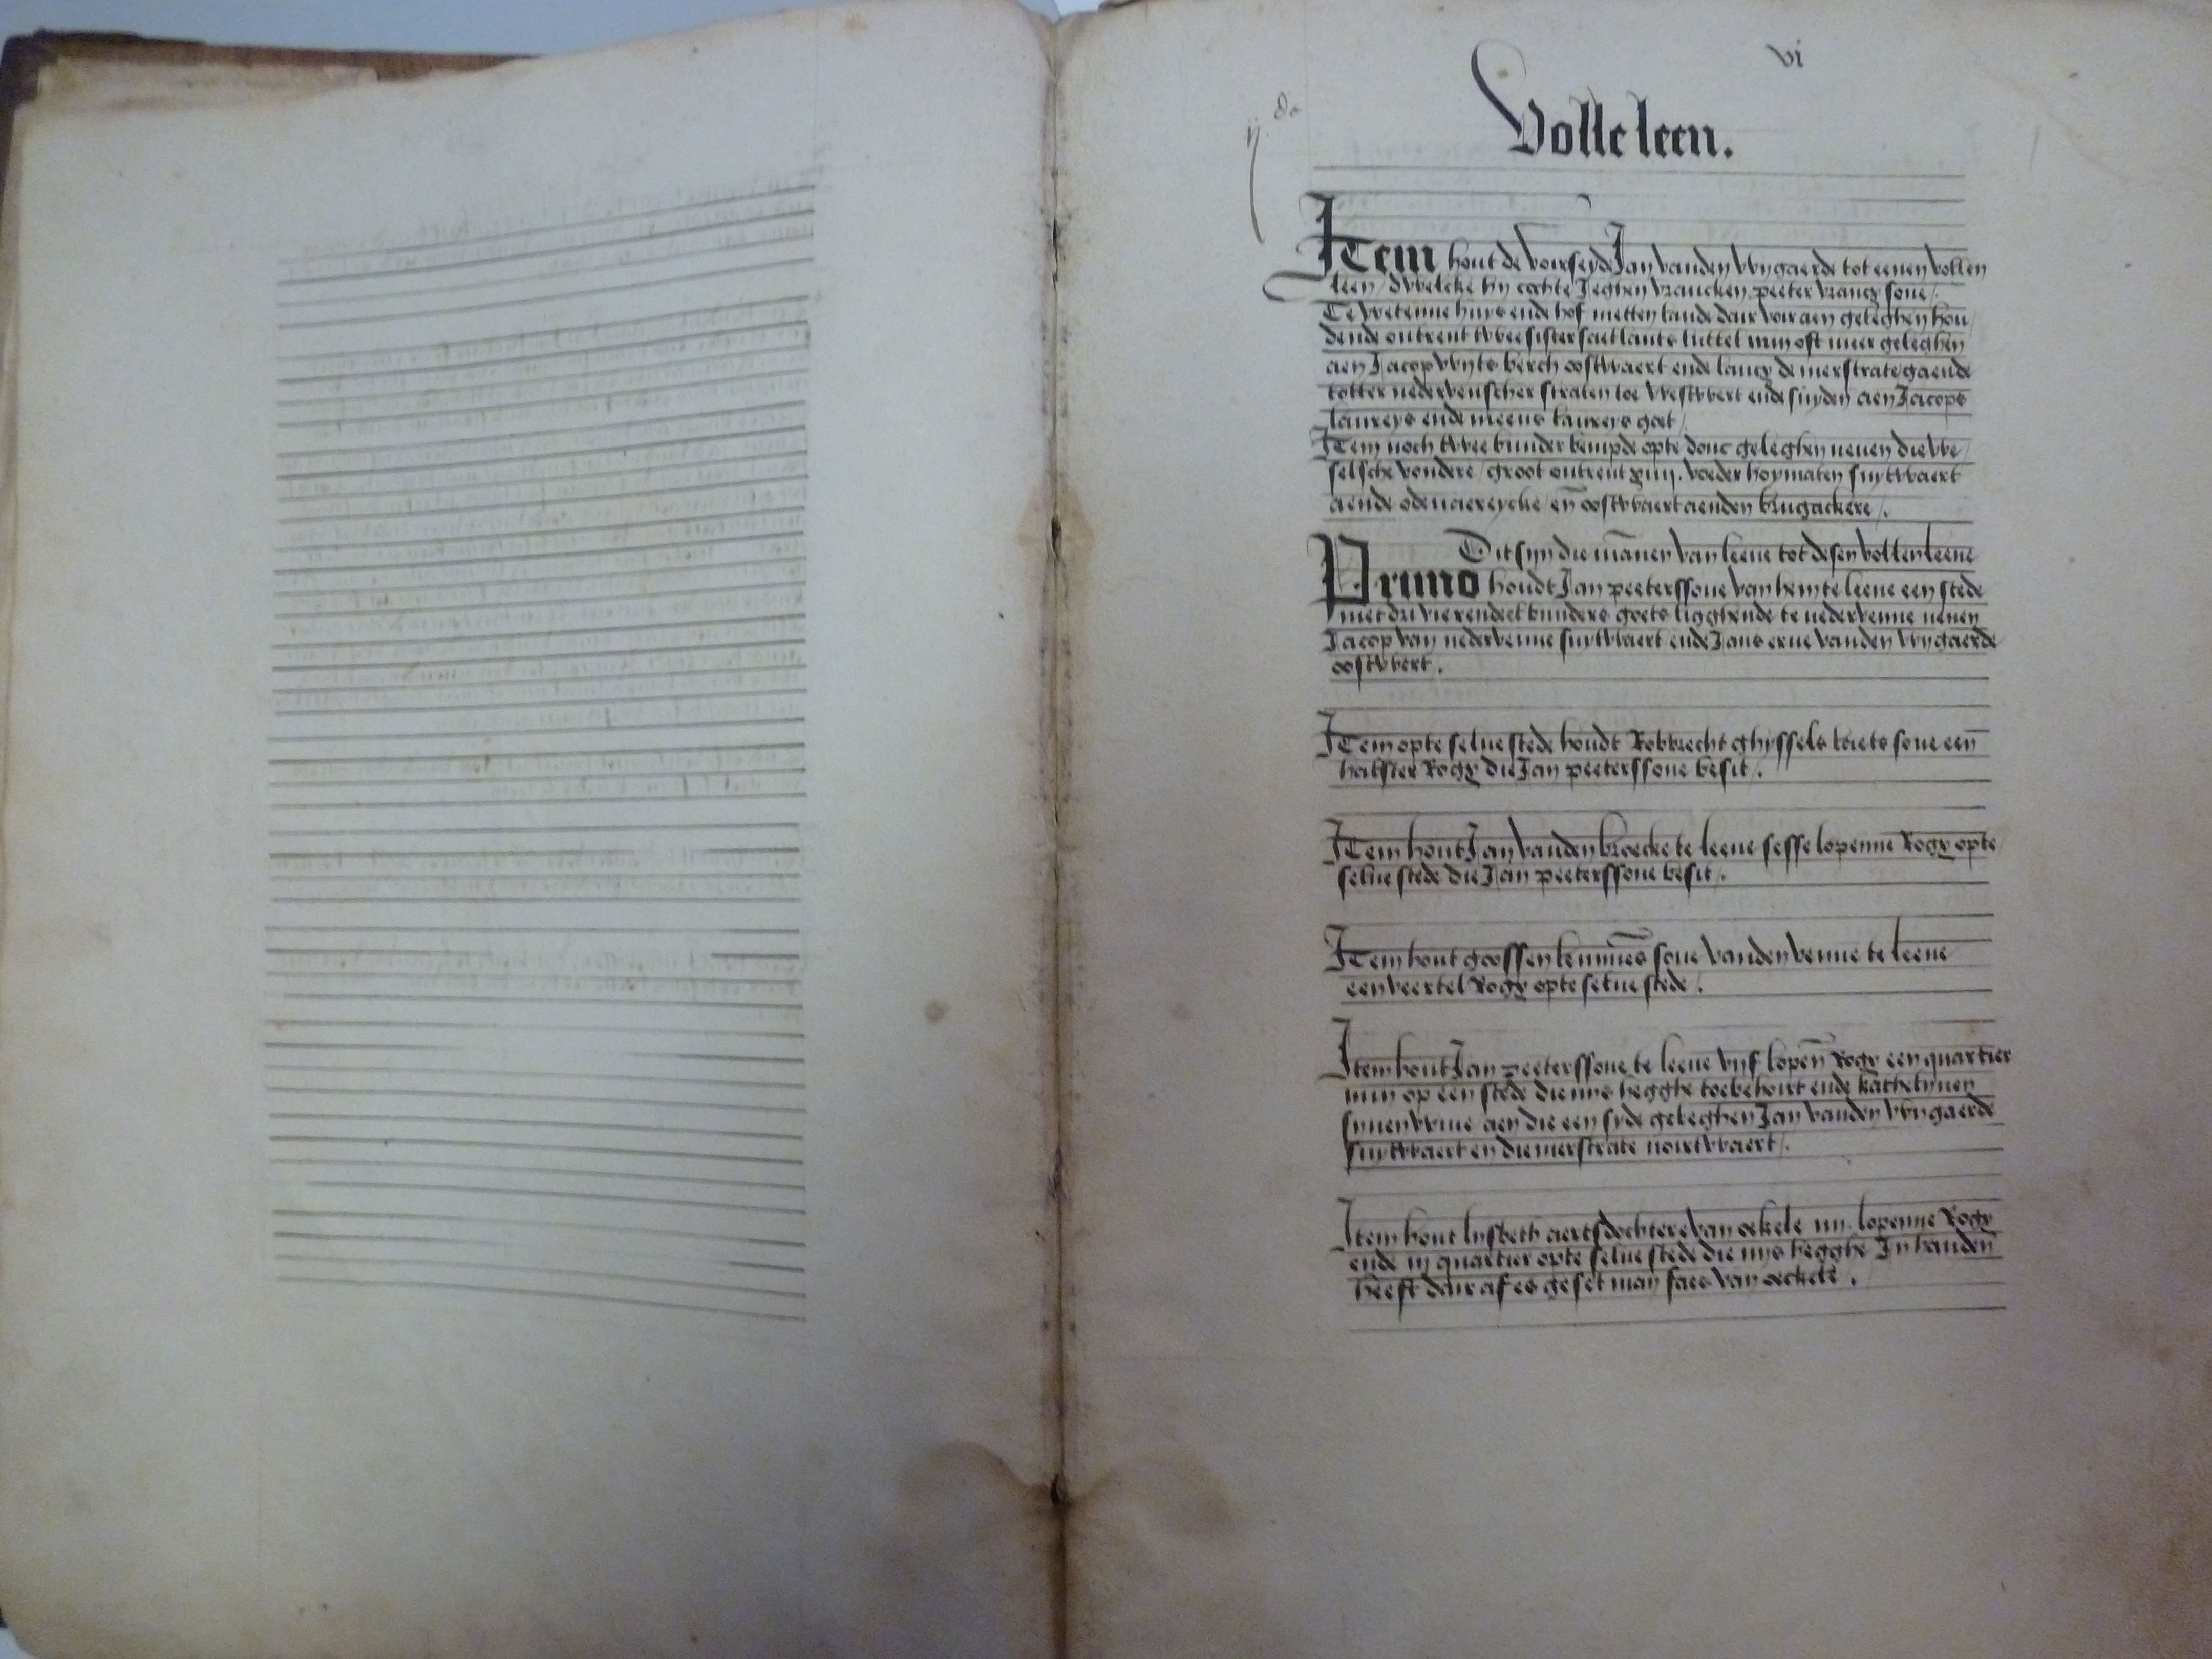 vi
ij. de
Volle leen.
Item hout de voirseyde Jan vanden Wygaerde tot eenen vollen
leen / dwelcke hy cochte Jeghen vrancken peeter vrancx sone /.
Te wetenne huys ende hof metten lande dair voir aen geleghen hou/
dende ontrent twee sister saetlants luttel myn oft meer geleghen
aen Jacop wyts berch oostwaert ende lancx de merstrate gaende
totter nedervenscher straten toe westwert ende suyden aen Jacops
laureys ende meeus laureys goet /
Item noch twee bunder bempde opte donc geleghen neuen die we/
selsche vondere / groot ontrent xiiij. voeder hoymaten suytwaert
aende odevaereycke / en̄ oostwaert aenden brugackere /.
Dit syn die mānen van leene tot desen vollen leene
Primo houdt Jan peeterssone van hem te leene een stede
met dri vierendeel bunders goets ligghende te nedervenne neuen
Jacop van nedervenne suytwaert ende Jans erue vanden wygaerde
oostwert.
Item opte selue stede houdt Robbrecht ghyssels baets sone een̄
halster Rogx die Jan peeterssone besit /.
Item hout Jan vanden broecke te leene sesse lopenne Rogx opte/
selue stede die Jan peeterssone besit /.
Item hout goossen sone vanden venne te leene
een veertel Rogx opte selue stede /.
Item hout Jan peeterssone te leene vijf lopen̄ Rogx een quartier
myn op een stede die nijs hegghe toebehoirt ende kathelynen
synen wiue aen die een syde geleghen Jan vanden wygaerde
suytwaert en die merstrate noirtwaert /.
Item hout lysbeth aerts dochtere van oekele iiij. lopenne Rogx
ende iij quartier opte selue stede die nijs hegghe In handen̄
heeft dair af es geset man faes van oeckele.